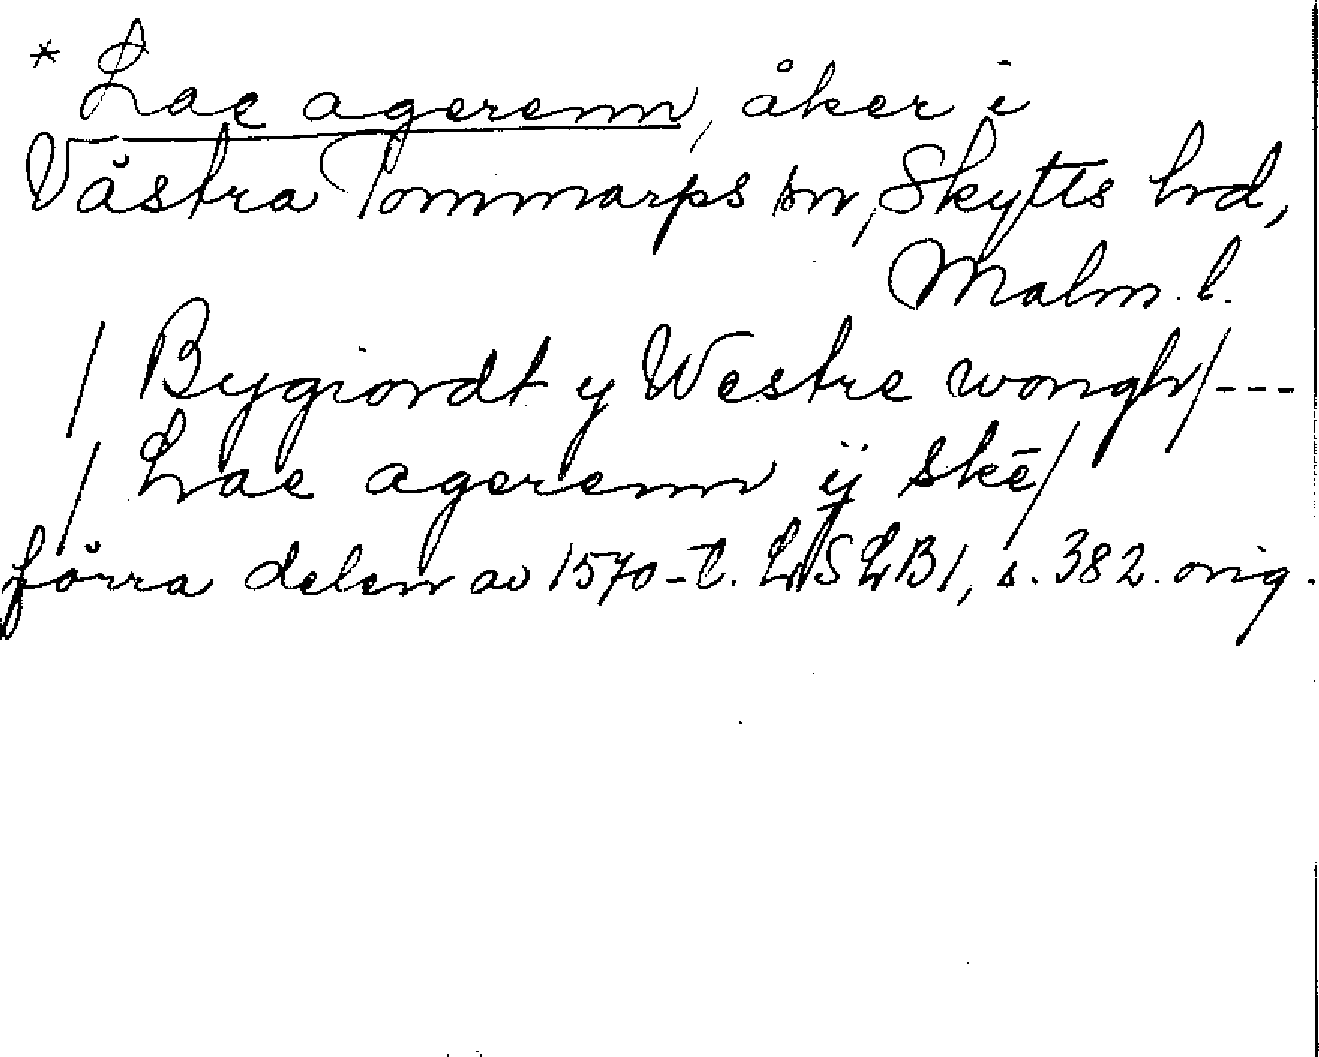 * Lae agerenn, åker i
Västra Tommarps sn, Skytts hd,
Malm. l.
/ Bygiordt y Westre wongh/---
/ Lae agerenn ij skē/
förra delen av 1570-t. LSLB1, s. 382. orig.